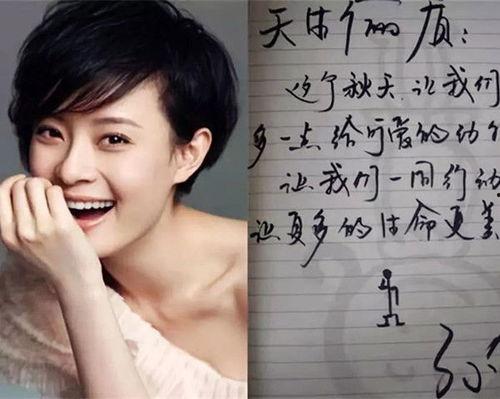 天生俪质:
这个秋天,让我们
多一点给可爱的动
让我们一同行动
让更多的生命更美
孙